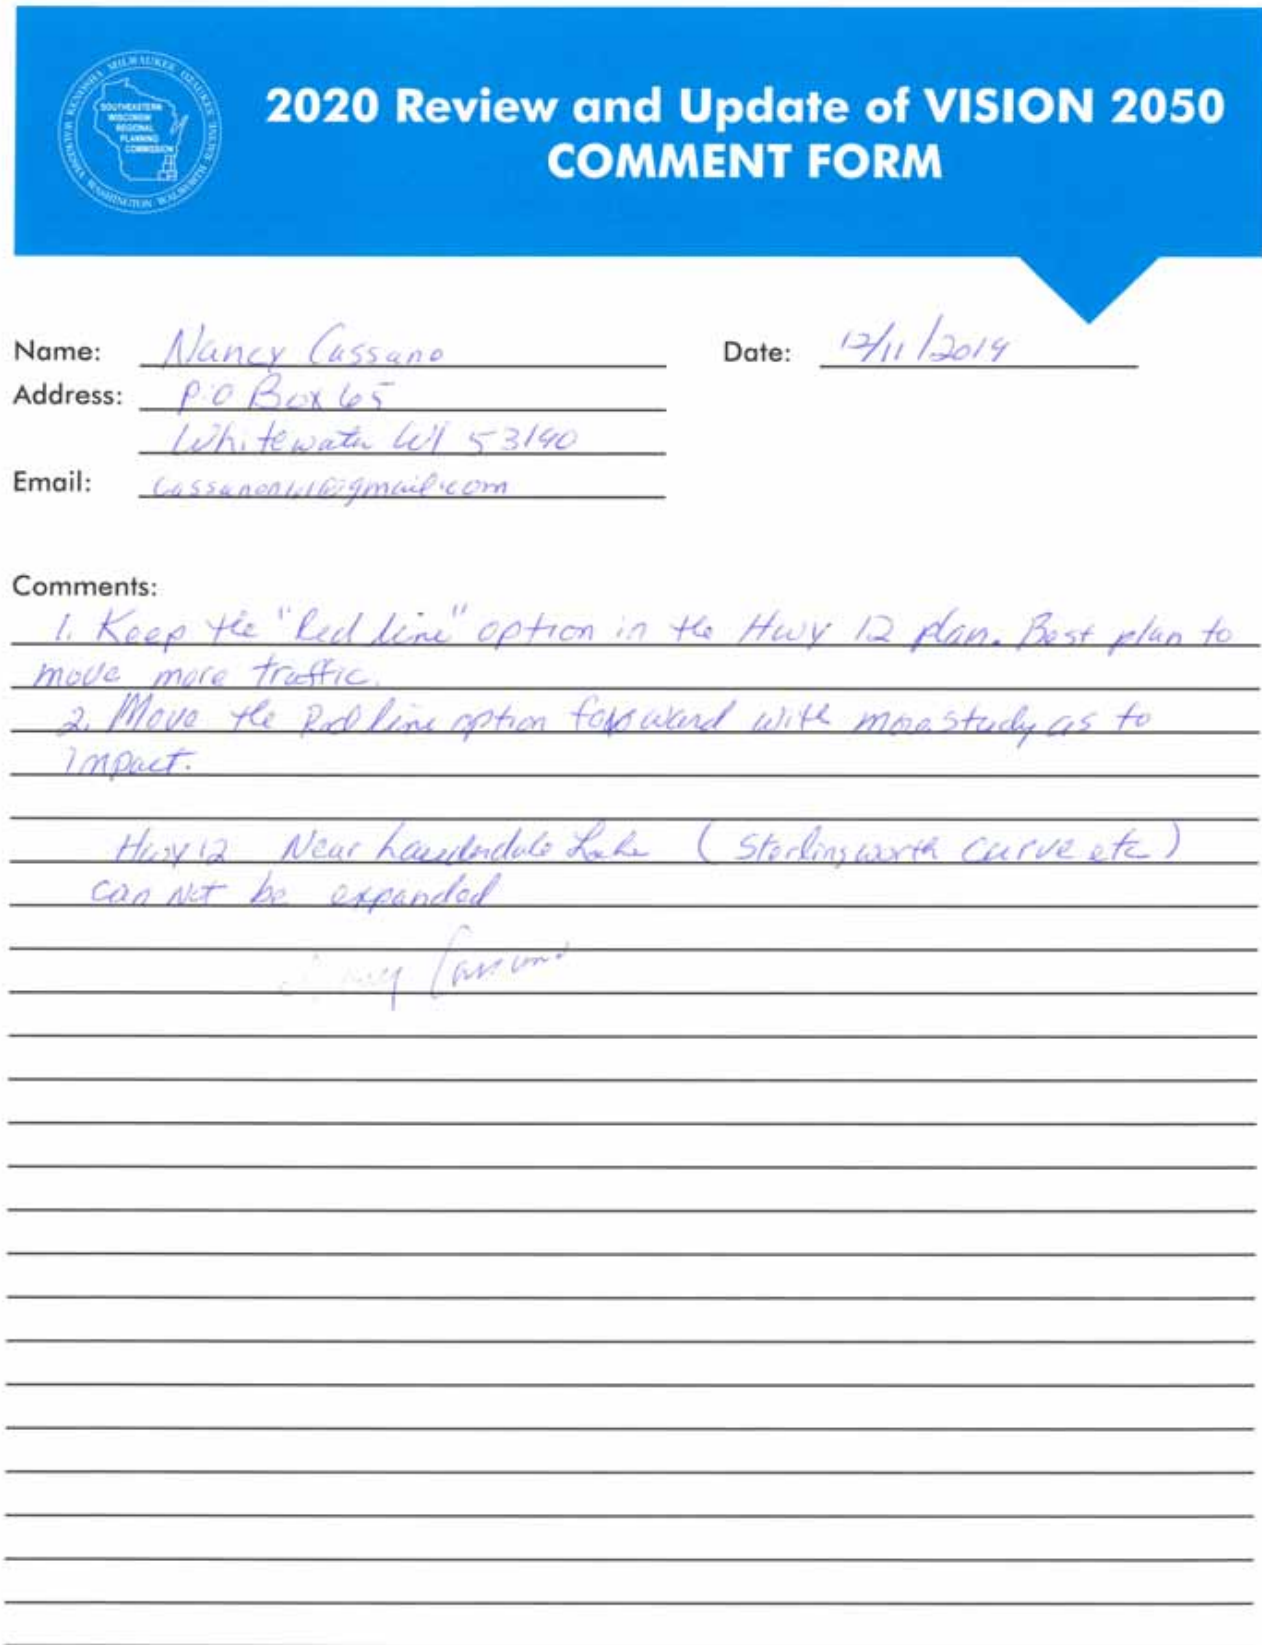 KENOSHA MILWAUKEE OZAUKEE RACINE WALWORTH WASHINGTON WAUKESHA
SOUTHEASTERN
WISCONSIN
REGIONAL
PLANNING
COMMISSION
2020 Review and Update of VISION 2050
COMMENT FORM
Name: Nancy Cassano
Date: 12/11/2019
Address: P.O Box 65
Whitewater WI 53190
Email: @gmail.com
Comments:
1. Keep the "Red line" option in the Hwy 12 plan. Best plan to
move more traffic.
2. Move the Red line option forward with more study as to
impact.
Hwy 12 Near Lauderdale Lake (Sterlingworth curve etc)
can not be expanded
Nancy Cassano